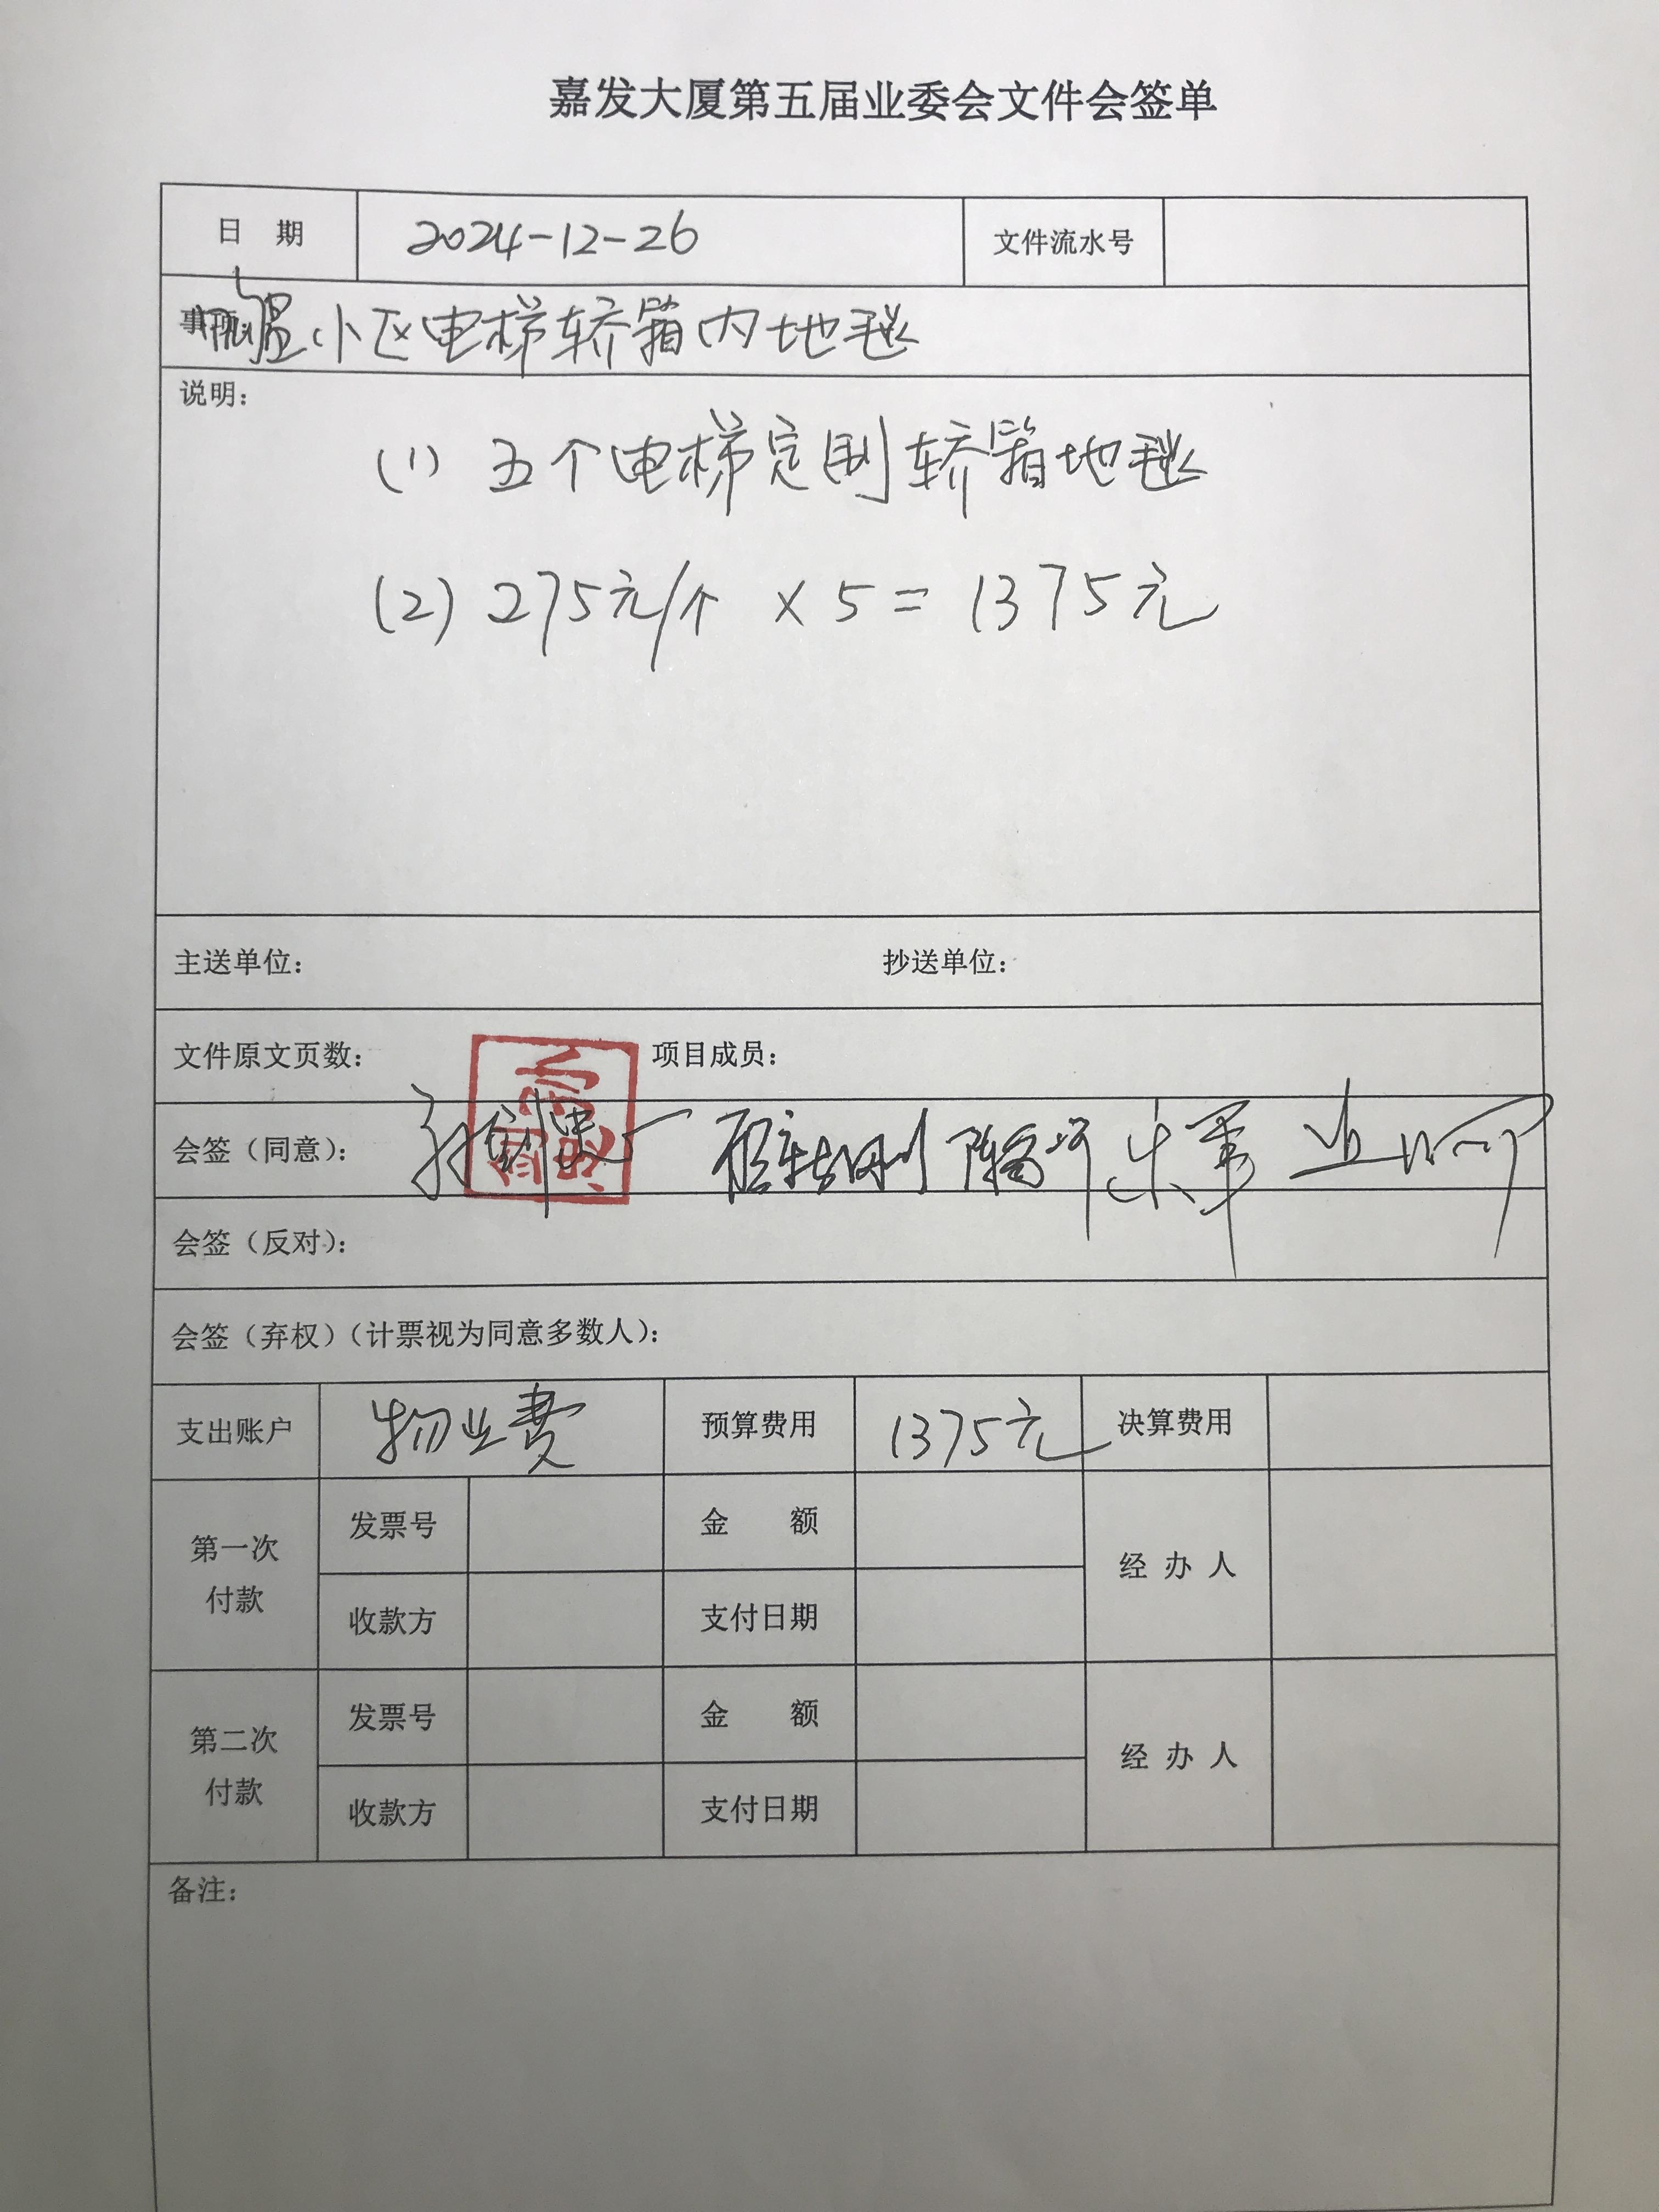 嘉发大厦第五届业委会文件会签单
日 期 2024-12-26 文件流水号
小区电梯轿箱内地毯
说明：
(1) 五个电梯定制轿箱地毯
(2) 275元/个 × 5 = 1375元
主送单位： 抄送单位：
文件原文页数： 项目成员：
会签（同意）：
会签（反对）：
会签（弃权）（计票视为同意多数人）：
支出账户 物业费 预算费用 1375元 决算费用
第一次付款 发票号 金 额 经 办 人
收款方 支付日期
第二次付款 发票号 金 额 经 办 人
收款方 支付日期
备注：